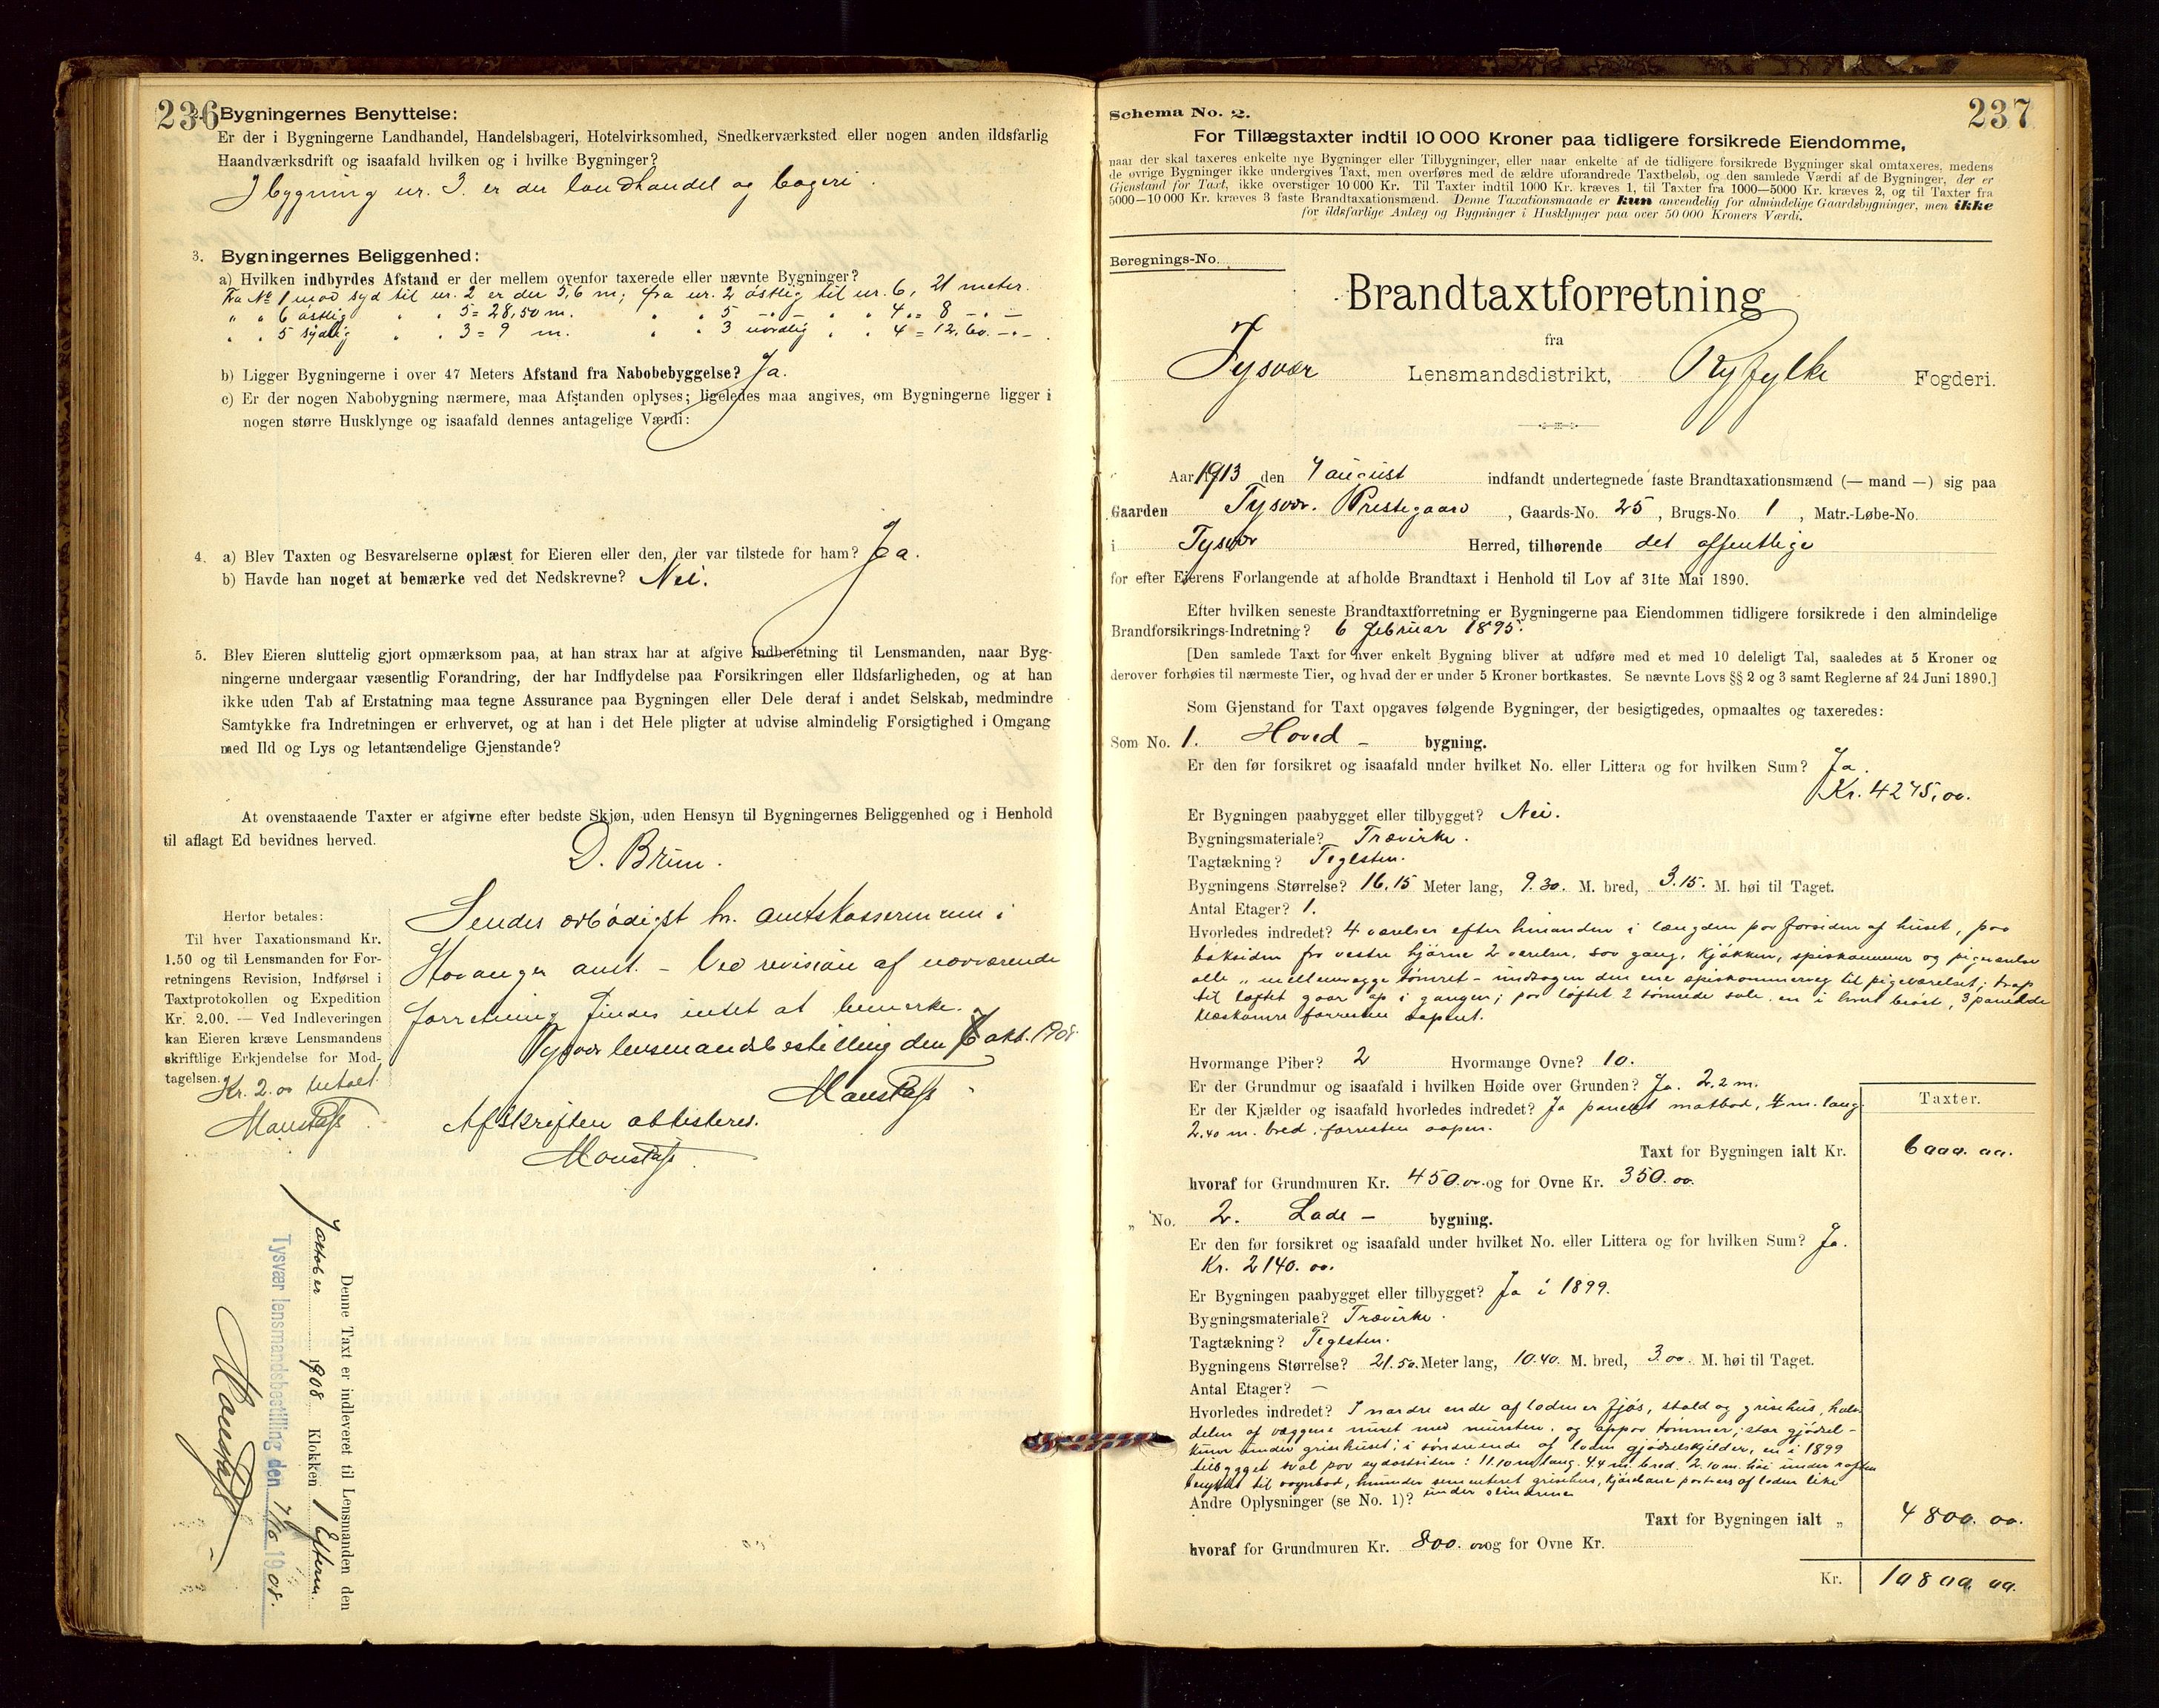 236
Bygningernes Benyttelse:
Er der i Bygningerne Landhandel, Handelsbageri, Hotelvirksomhed, Snedkerværksted eller nogen anden ildsfarlig
Haandværksdrift og isaafald hvilken og i hvilke Bygninger?
I bygning nr. 3. er der landhandel og bageri.
3. Bygningernes Beliggenhed:
a) Hvilken indbyrdes Afstand er der mellem ovenfor taxerede eller nævnte Bygninger?
Fra No 1 mod syd til nr. 2 er der 5,6 m; fra nr. 2 østlig til nr. 6, 21 meter.
" " 6 østlig " " 5 = 28,50 m. " " 5 -"- " " 4 = 8 -"-
" " 5 sydlig " " 3 = 9 m. " " 3 nordlig " " 4 = 12,60. -"-
b) Ligger Bygningerne i over 47 Meters Afstand fra Nabobebyggelse? Ja.
c) Er der nogen Nabobygning nærmere, maa Afstanden oplyses; ligeledes maa angives, om Bygningerne ligger i
nogen større Husklynge og isaafald dennes antagelige Værdi:
4. a) Blev Taxten og Besvarelserne oplæst for Eieren eller den, der var tilstede for ham? Ja.
b) Havde han noget at bemærke ved det Nedskrevne? Nei.
5. Blev Eieren sluttelig gjort opmærksom paa, at han strax har at afgive Indberetning til Lensmanden, naar Byg-
ningerne undergaar væsentlig Forandring, der har Indflydelse paa Forsikringen eller Ildsfarligheden, og at han
ikke uden Tab af Erstatning maa tegne Assurance paa Bygningen eller Dele deraf i andet Selskab, medmindre
Samtykke fra Indretningen er erhvervet, og at han i det Hele pligter at udvise almindelig Forsigtighed i Omgang
med Ild og Lys og letantændelige Gjenstande?
At ovenstaaende Taxter er afgivne efter bedste Skjøn, uden Hensyn til Bygningernes Beliggenhed og i Henhold
til aflagt Ed bevidnes herved.
D. Brun.
Herfor betales:
Til hver Taxationsmand Kr.
1.50 og til Lensmanden for For-
retningens Revision, Indførsel i
Taxtprotokollen og Expedition
Kr. 2.00. — Ved Indleveringen
kan Eieren kræve Lensmandens
skriftlige Erkjendelse for Mod-
tagelsen.
Kr. 2.00 betalt.
Sendes ærbødigst hr. amtskassereren i
Stavanger amt. - Ved revision af nærværende
forretning findes intet at bemerke.
Tysvær lensmandsbestilling den 7 okt. 1908
Afskriften attesteres.
Denne Taxt er indleveret til Lensmanden den
7 oktober 1908 Klokken 1 Efterm.
Tysvær lensmandsbestilling den 7/10 1908.
237
Schema No. 2.
For Tillægstaxter indtil 10 000 Kroner paa tidligere forsikrede Eiendomme,
naar der skal taxeres enkelte nye Bygninger eller Tilbygninger, eller naar enkelte af de tidligere forsikrede Bygninger skal omtaxeres, medens
de øvrige Bygninger ikke undergives Taxt, men overføres med de ældre uforandrede Taxtbeløb, og den samlede Værdi af de Bygninger, der er
Gjenstand for Taxt, ikke overstiger 10 000 Kr. Til Taxter indtil 1000 Kr. kræves 1, til Taxter fra 1000—5000 Kr. kræves 2, og til Taxter fra
5000—10 000 Kr. kræves 3 faste Brandtaxationsmænd. Denne Taxationsmaade er kun anvendelig for almindelige Gaardsbygninger, men ikke
for ildsfarlige Anlæg og Bygninger i Husklynger paa over 50 000 Kroners Værdi.
Beregnings-No.
Brandtaxtforretning
fra
Tysvær Lensmandsdistrikt, Ryfylke Fogderi.
Aar 1913 den 7 august indfandt undertegnede faste Brandtaxationsmænd (— mand —) sig paa
Gaarden Tysvær. Prestegaard, Gaards-No. 25, Brugs-No. 1, Matr.-Løbe-No.
i Tysvær Herred, tilhørende det offentlige
for efter Eierens Forlangende at afholde Brandtaxt i Henhold til Lov af 31te Mai 1890.
Efter hvilken seneste Brandtaxtforretning er Bygningerne paa Eiendommen tidligere forsikrede i den almindelige
Brandforsikrings-Indretning? 6 februar 1895.
[Den samlede Taxt for hver enkelt Bygning bliver at udføre med et med 10 deleligt Tal, saaledes at 5 Kroner og
derover forhøies til nærmeste Tier, og hvad der er under 5 Kroner bortkastes. Se nævnte Lovs §§ 2 og 3 samt Reglerne af 24 Juni 1890.]
Som Gjenstand for Taxt opgaves følgende Bygninger, der besigtigedes, opmaaltes og taxeredes:
Som No. 1. Hoved - bygning.
Er den før forsikret og isaafald under hvilket No. eller Littera og for hvilken Sum? Ja.
Kr. 4275,00.
Er Bygningen paabygget eller tilbygget? Nei.
Bygningsmateriale? Trævirke.
Tagtækning? Teglsten.
Bygningens Størrelse? 16.15 Meter lang, 9.30. M. bred, 3.15. M. høi til Taget.
Antal Etager? 1.
Hvorledes indredet? 4 værelser efter hinanden i længden paa forsiden af huset, paa
baksiden fra vestre hjørne 2 værelser, saa gang, kjøkken, spiskammer og pigeværelse
alle mellemvægge tømret - undtagen den ene spiskammervæg til pigeværelset; trap
til loftet gaar op i gangen; paa loftet 2 tømrede sale en i hver brøst, 3 panelede
forresten aapent.
Hvormange Piber? 2 Hvormange Ovne? 10.
Er der Grundmur og isaafald i hvilken Høide over Grunden? Ja. 2,2 m.
Er der Kjælder og isaafald hvorledes indredet? Ja panelet matbod, 4 m. lang
2.40 m. bred, forresten aapen.
Taxter.
Taxt for Bygningen ialt Kr. 6000.00.
hvoraf for Grundmuren Kr. 450.00 og for Ovne Kr. 350.00.
" No. 2. Lade - bygning.
Er den før forsikret og isaafald under hvilket No. eller Littera og for hvilken Sum? Ja.
Kr. 2140.00.
Er Bygningen paabygget eller tilbygget? Ja i 1899.
Bygningsmateriale? Trævirke.
Tagtækning? Teglsten.
Bygningens Størrelse? 21.50. Meter lang, 10.40. M. bred, 3.00. M. høi til Taget.
Antal Etager? -
Hvorledes indredet? I nordre ende af laden er fjøs, stald og grisehus,
delen af væggene muret med mursten, og tømmer, gjødsel-
under grisehuset; i søndre ende af laden gjødselskjelder, en i 1899
tilbygget sval paa sydostsiden: 11.10 m lang. 4.4 m. bred. 2.10 m. høi under raften
benyttet til vognbod, grisehus, af laden like
Andre Oplysninger (se No. 1)? under
Taxt for Bygningen ialt " 4800.00.
hvoraf for Grundmuren Kr. 800.00 og for Ovne Kr.
Kr. 10800.00.